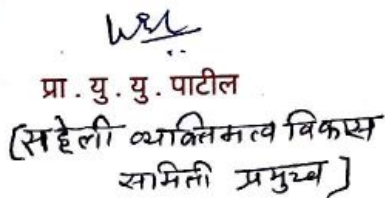 प्रा . यु . यु . पाटील
(सहेली व्यक्तिमत्व विकास
समिती प्रमुख)